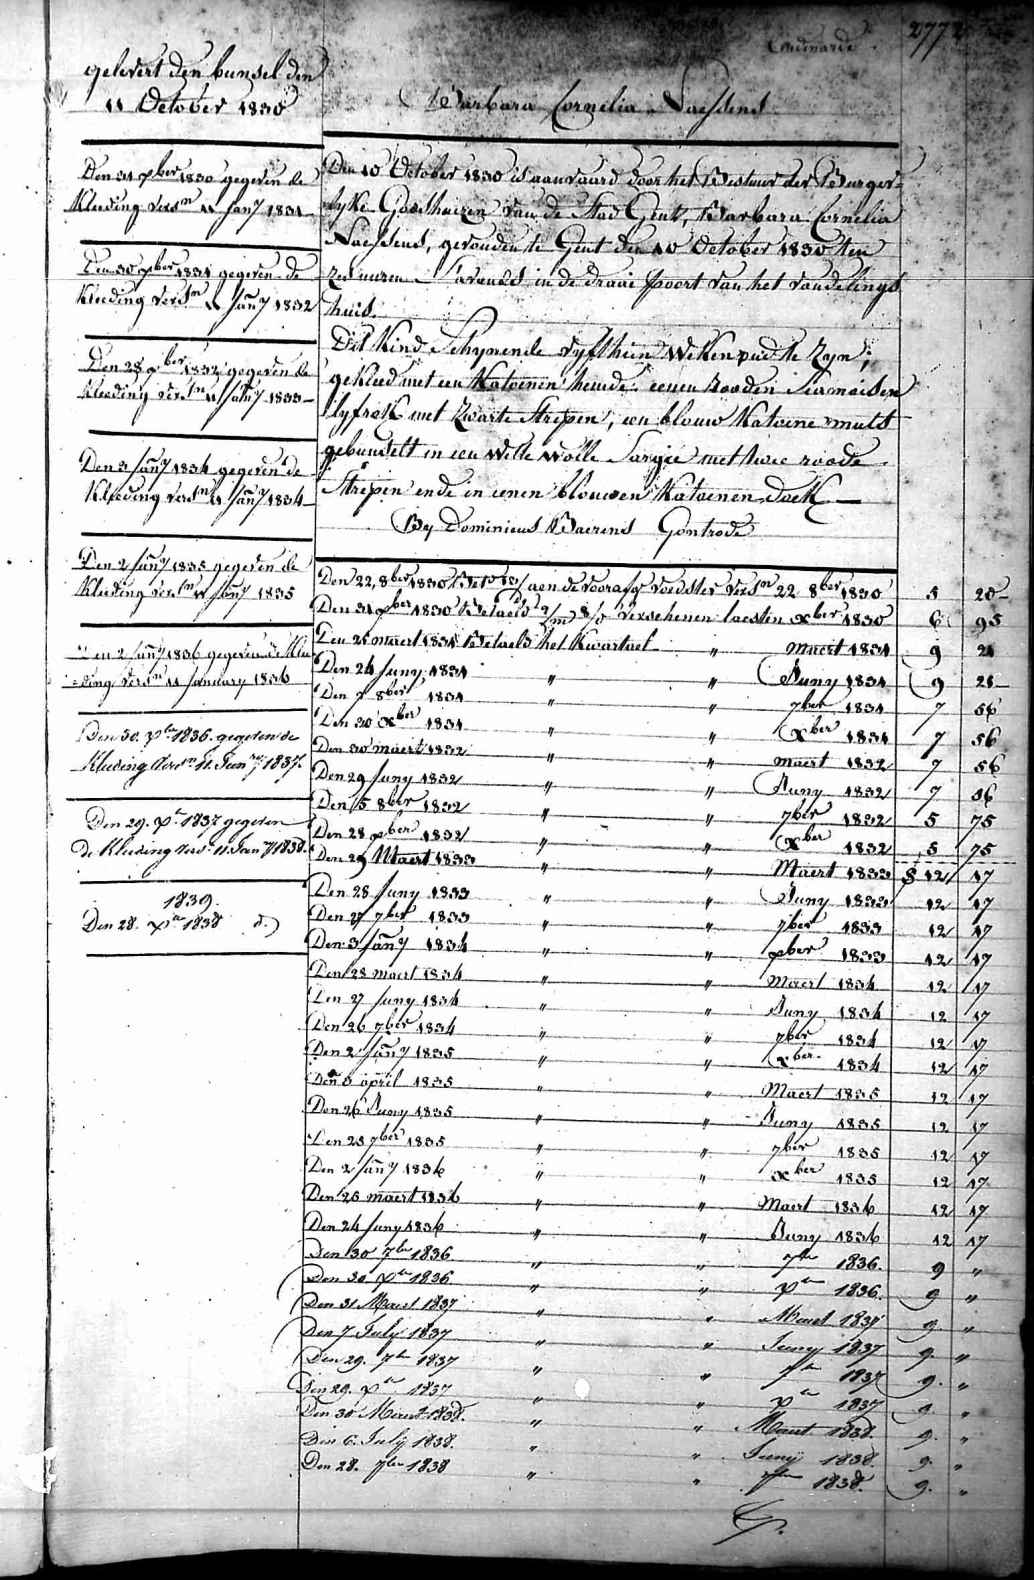 2772
gelevert den bunsel den
11 October 1830
Barbara Cornelia Naessens
Den 31 xber 1830 gegeven de
Kleeding versn 11 Jany 1831
Den 30 xber 1831 gegeven de
Kleeding versn 11 Jany 1832
Den 28 xber 1832 gegeven de
Kleeding versn 11 Jany 1833
Den 3 Jany 1834 gegeven de
Kleeding versn 11 Jany 1834
Den 2 Jany 1835 gegeven de
Kleeding versn 11 Jany 1835
Den 2 Jany 1836 gegeven de Klee
=ding versn 11 January 1836
Den 30. xber 1836. gegeven de
Kleeding versn 11. Jany 1837.
Den 29. xber 1837 gegeven
de Kleeding versn 11. Jany 1838.
1839.
Den 28. xber 1838 do
Den 10 October 1830 is aanvaard door het Bestuur der Burger=
lyke Godshuizen van de Stad Gent, Barbara Cornelia
Naessens, gevonden te Gent den 10 October 1830 ten
zes uuren s'avonds in de draai poort van het vondelings
huis.
Dit Kind Schynende vyfthien Weken oud te Zyn;
gekleed met een Katoenen hemde, eenen rooden Siamoisen
lyfrok met Zwarte Strepen, een blouw Katoene muts
gebundelt in een Witte Wolle Sargie met twee roode
Strepen ende in eenen blouwen Katoenen doek
By Dominicus Baerens Gontrode
Den 22, 8ber 1830 Bett aen de voorafg voedster versn 22 8ber 1830 5 20
Den 31 xber 1830 Betaeld 2/m 8/d verschenen laesten xber 1830 6 95
Den 25 maert 1831 Betaeld het Kwartael " maert 1831 9 21
Den 24 Juny 1831 " " Juny 1831 9 21
Den 7 8ber 1831 " " 7ber 1831 7 56
Den 30 xber 1831 " " xber 1831 7 56
Den 30 maert 1832 " " maert 1832 7 56
Den 29 Juny 1832 " " Juny 1832 7 56
Den 5 8ber 1832 " " 7ber 1832 5 75
Den 28 xber 1832 " " xber 1832 5 75
Den 29 Maert 1833 " " Maert 1833 12 17
Den 28 Juny 1833 " " Juny 1833 12 17
Den 27 7ber 1833 " " 7ber 1833 12 17
Den 3 Jany 1834 " " xber 1833 12 17
Den 28 maert 1834 " " Maert 1834 12 17
Den 27 Juny 1834 " " Juny 1834 12 17
Den 26 7ber 1834 " " 7ber 1834 12 17
Den 2 Jany 1835 " " xber 1834 12 17
Den 3 april 1835 " " Maert 1835 12 17
Den 26 Juny 1835 " " Juny 1835 12 17
Den 25 7ber 1835 " " 7ber 1835 12 17
Den 2 Jany 1836 " " xber 1835 12 17
Den 25 maert 1836 " " Maert 1836 12 17
Den 24 Juny 1836 " " Juny 1836 12 17
Den 30 7ber 1836 " " 7ber 1836. 9 "
Den 30. xber 1836 " " xber 1836. 9 "
Den 31 Maert 1837 " " Maert 1837 9 "
Den 7 July 1837 " " Juny 1837 9. "
Den 29. 7ber 1837 " " 7ber 1837 9. "
Den 29. xber 1837 " " xber 1837 9. "
Den 30 Maert 1838. " " Maert 1838. 9. "
Den 6. July 1838. " " Juny 1838. 9. "
Den 28. 7ber 1838 " " 7ber 1838. 9. "